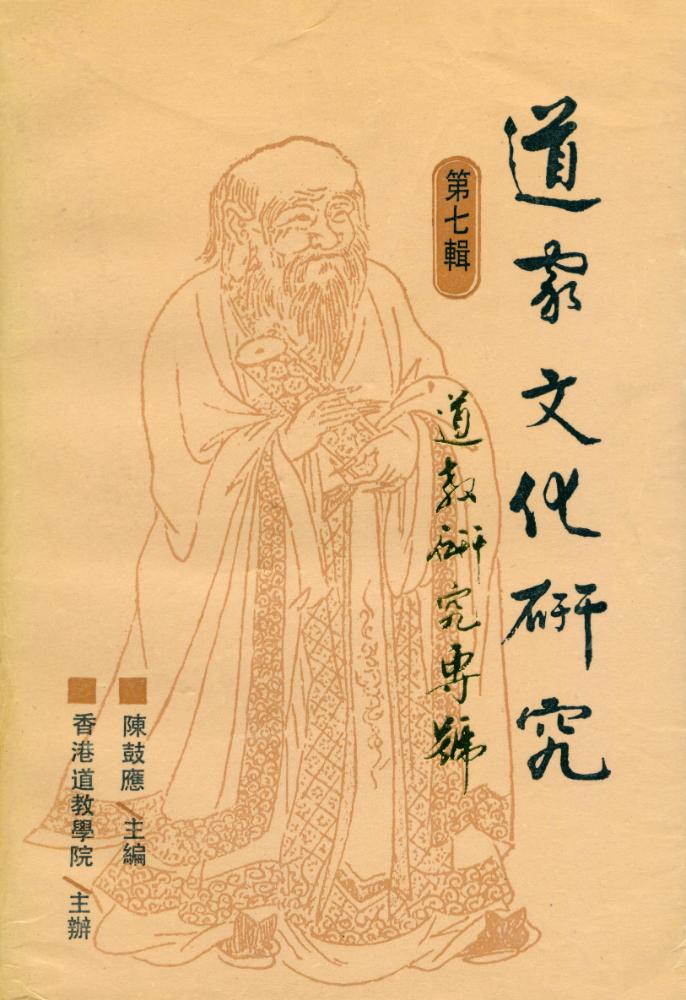 道家文化研究
第七輯
道教研究專號
陳鼓應/主編
香港道教學院/主辦